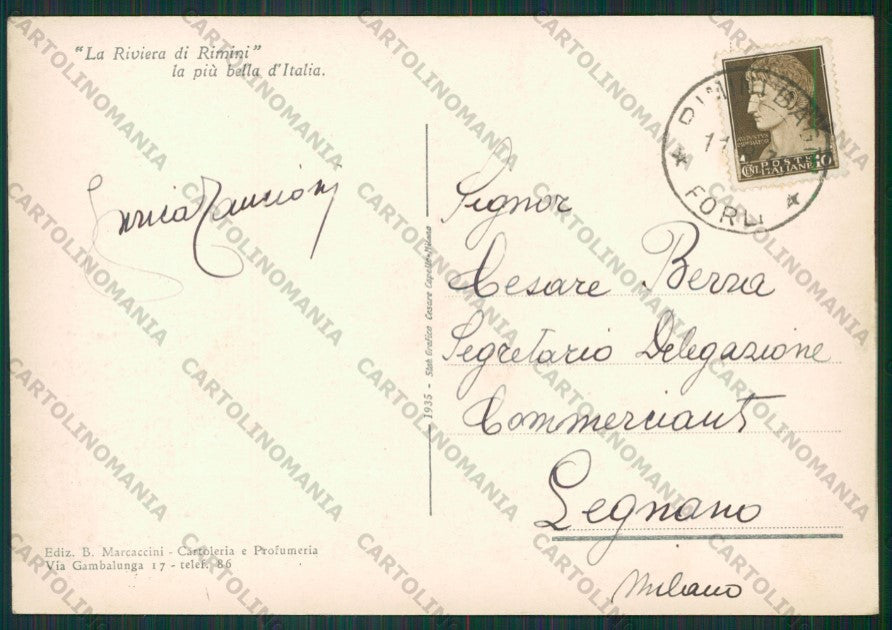 "La Riviera di Rimini"
la più bella d'Italia.
AUGUSTUS
CENT. POSTE 10
ITALIANE
FORLI
Signor
Cesare Berra
Segretario Delegazione
Commercianti
Legnano
Milano
1935 - Stab. Grafico Cesare Capello - Milano
Ediz. B. Marcaccini - Cartoleria e Profumeria
Via Gambalunga 17 - telef. 86
CARTOLINOMANIA